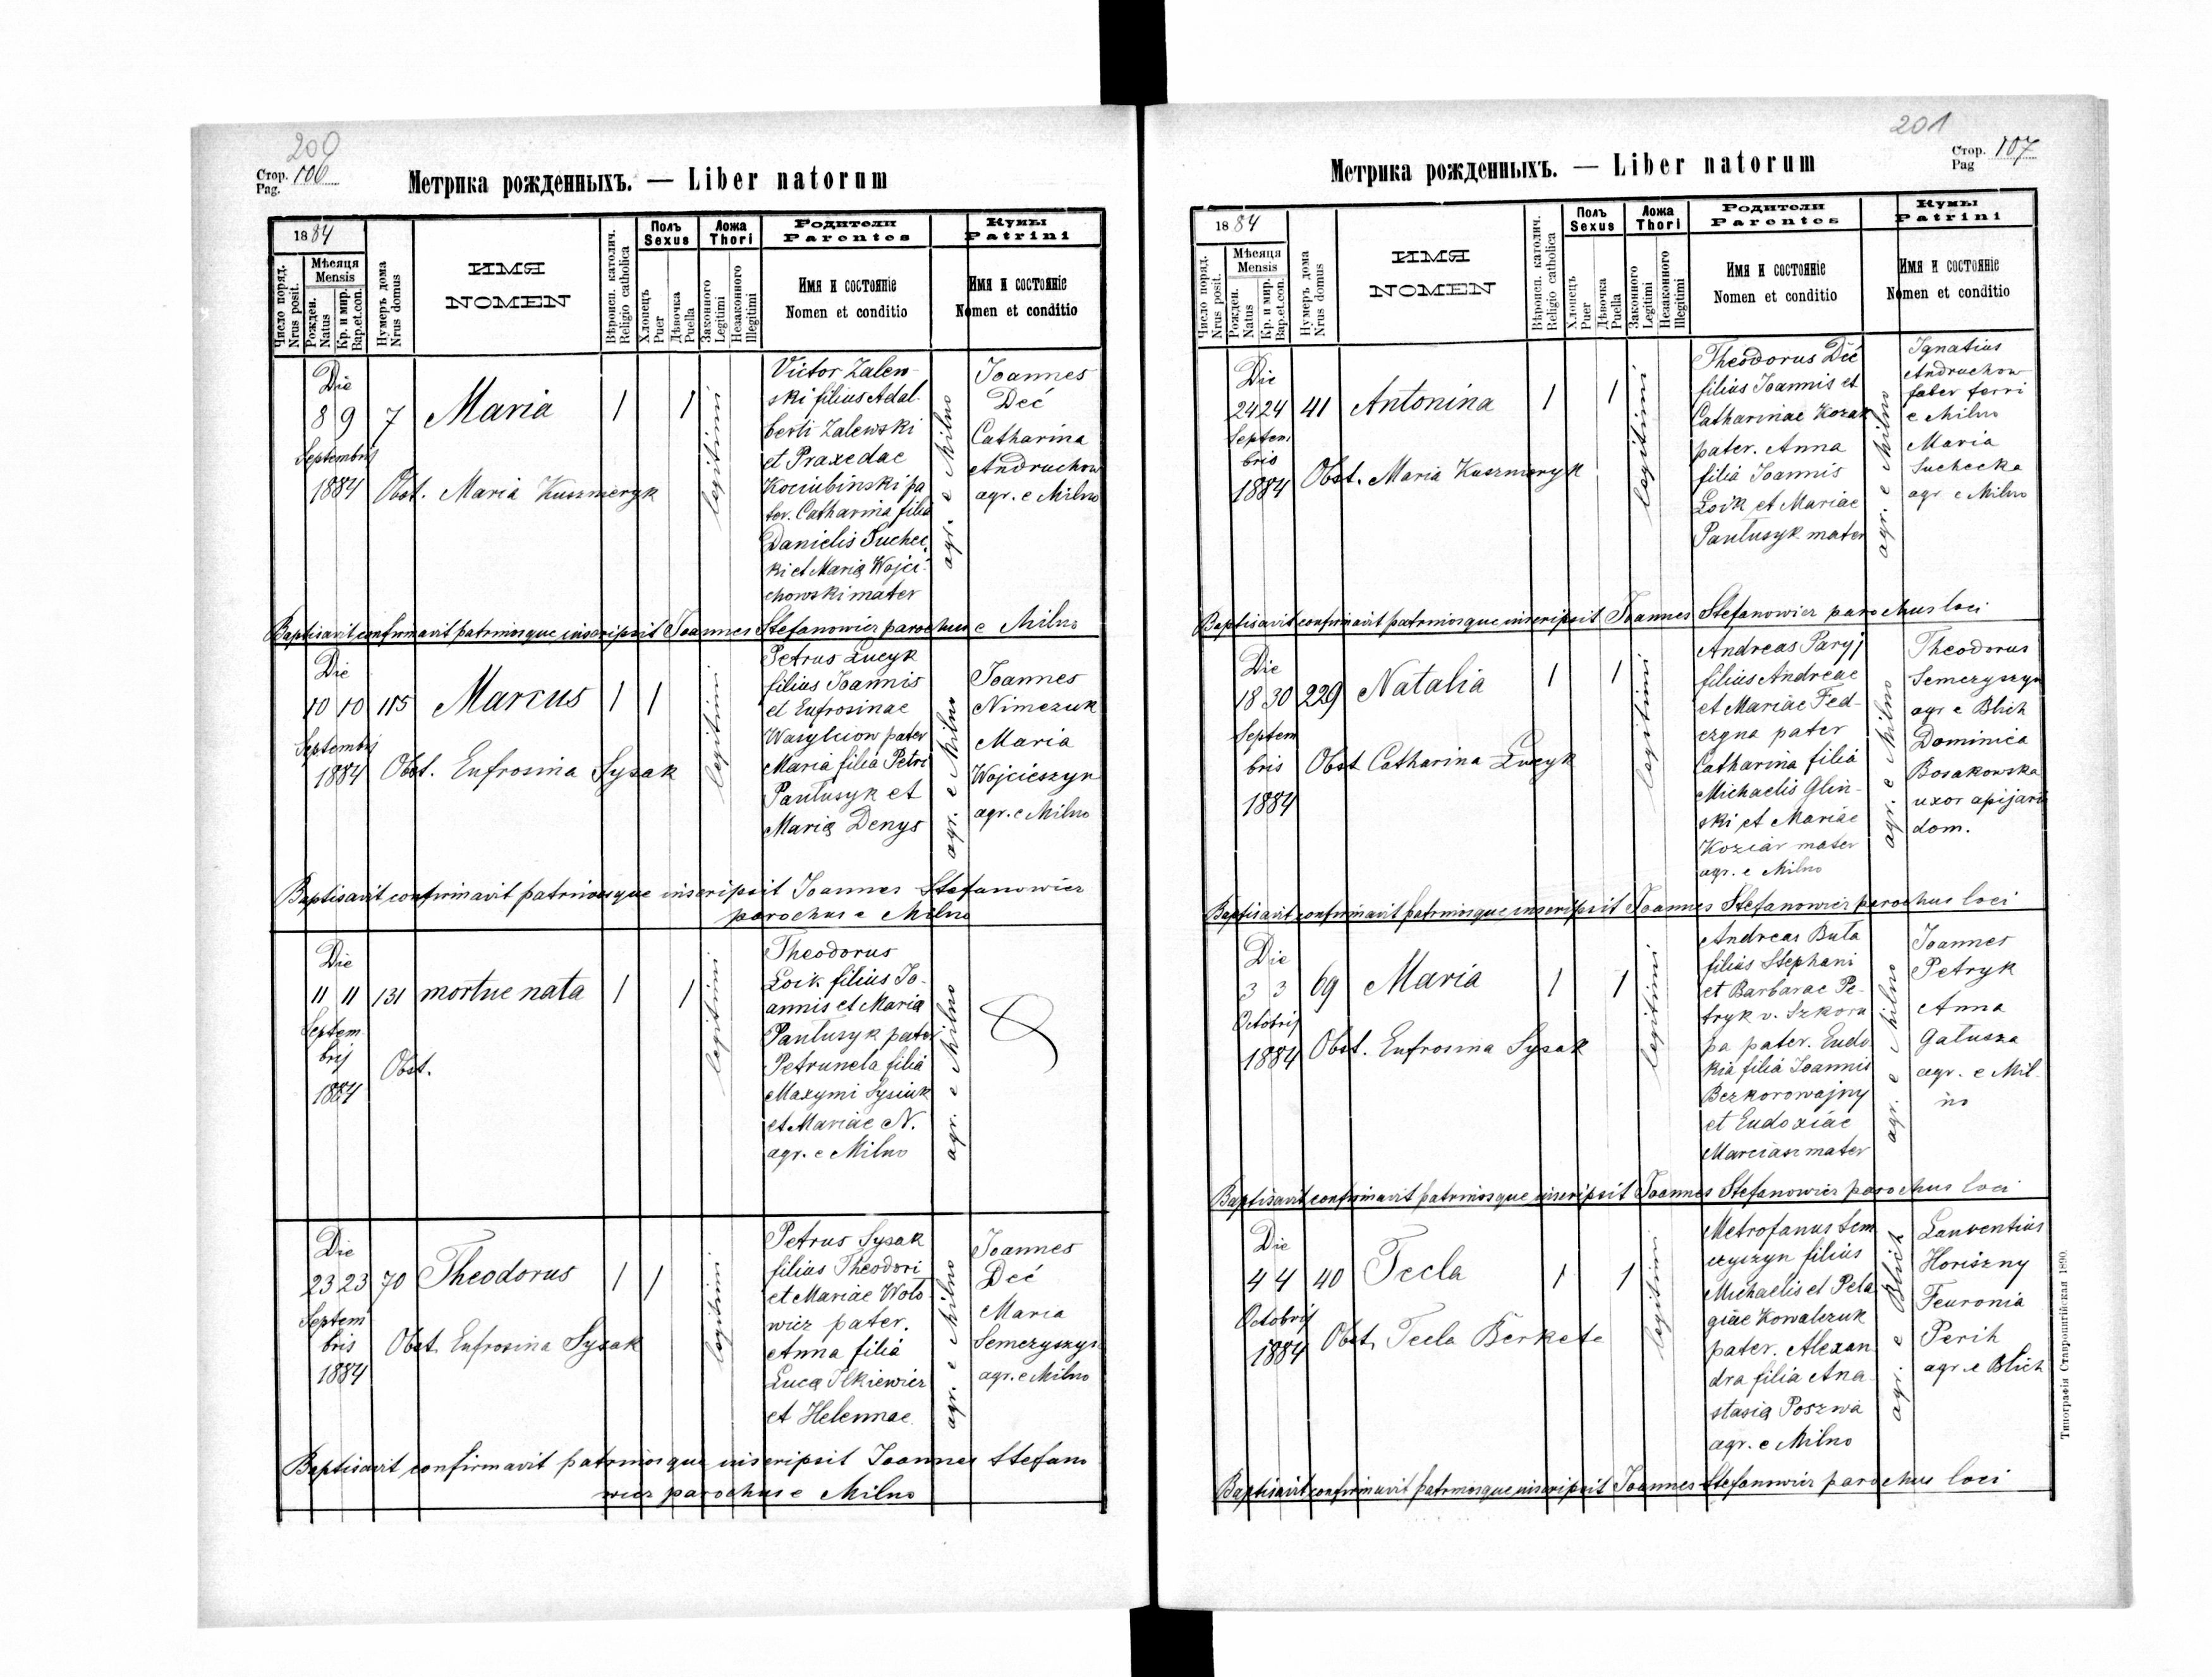 200
Стор. Pag. 106
Метрика рожденныхъ. — Liber natorum
1884
Число поряд. Nrus posit.
Мѣсяця Mensis
Рожден. Natus
Кр. и мир. Bap.et.con.
Нумеръ дома Nrus domus
ИМЯ
NOMEN
Вѣроисп. католич. Religio catholica
Полъ Sexus
Хлопецъ Puer
Дѣвочка Puella
Ложа Thori
Законного Legitimi
Незаконного Illegitimi
Родители
Parentes
Имя и состоянiе
Nomen et conditio
Кумы
Patrini
Имя и состоянiе
Nomen et conditio
Die
8 9 7 Maria 1 1
Septembris
1884 Obst. Maria Kuszmeryk
legitimi
Victor Zalew-
ski filius Adal-
berti Zalewski
et Praxedae
Kociubinski pa
ter. Catharina filia
Danielis Suchec
ki et Maria Wojci-
chowski mater
agr. e Milno
Joannes
Deć
Catharina
Andruchow
agr. e Milno
Baptisavit confirmavit patrinosque inscripsit Joannes Stefanowicz parochus e Milno
Die
10 10 115 Marcus 1 1
Septembri
1884 Obst. Eufrosina Sysak
legitimi
Petrus Lucyk
filius Joannis
et Eufrosinae
Wasylciow pater
Maria filia Petri
Pantusyk et
Maria Denys
agr. e Milno
Joannes
Nimczuk
Maria
Wojcieszyn
agr. e Milno
Baptisavit confirmavit patrinosque inscripsit Joannes Stefanowicz
parochus e Milno
Die
11 11 131 mortue nata 1 1
Septem
brij
1884
Obst.
legitimi
Theodorus
Loik filius Jo-
annis et Maria
Pantusyk pater
Petrunela filia
Maxymi Sysiuk
et Mariae N.
agr. e Milno
agr. e Milno
Die
23 23 70 Theodorus 1 1
Septem
bris
1884
Obst. Eufrosina Sysak
legitimi
Petrus Sysak
filius Theodori
et Mariae Woło
wicz pater.
Anna filia
Luca Ilkiewicz
et Helennae
agr. e Milno
Joannes
Deć
Maria
Semczyszyn
agr. e Milno
Baptisavit confirmavit patrinosque inscripsit Joannes Stefano
wicz parochus e Milno
201
Стор. Pag 107
Метрика рожденныхъ. — Liber natorum
1884
Число поряд. Nrus posit.
Мѣсяця Mensis
Рожден. Natus
Кр. и мир. Bap.et.con.
Нумеръ дома Nrus domus
ИМЯ
NOMEN
Вѣроисп. католич. Religio catholica
Полъ Sexus
Хлопецъ Puer
Дѣвочка Puella
Ложа Thori
Законного Legitimi
Незаконного Illegitimi
Родители
Parentes
Имя и состоянiе
Nomen et conditio
Кумы
Patrini
Имя и состоянiе
Nomen et conditio
Die
24 24 41 Antonina 1 1
Septem
bris
1884
Obst. Maria Kuszmeryk
legitimi
Theodorus Deć
filius Joannis et
Catharinae Kozak
pater. Anna
filia Joannis
Loik et Mariae
Pantusyk mater
agr. e Milno
Ignatius
Andruchow
faber ferri
e Milno
Maria
Suchecka
agr e Milno
Baptisavit confirmavit patrinosque inscripsit Joannes Stefanowicz parochus loci
Die
18 30 229 Natalia 1 1
Septem
bris
1884
Obst Catharina Lucyk
legitimi
Andreas Paryj
filius Andreae
et Mariae Fed-
czyna pater
Catharina filia
Michaelis Glin-
ski et Mariae
Koziar mater
agr. e Milno
agr. e Milno
Theodorus
Semczyszyn
agr e Blich
Dominica
Bosakowska
uxor apijarii
dom.
Baptisavit confirmavit patrinosque inscripsit Joannes Stefanowicz parochus loci
Die
3 3 69 Maria 1 1
Octobris
1884
Obst. Eufrosina Sysak
legitimi
Andreas Buta
filius Stephani
et Barbarae Pe-
tryk v. Szkoru
pa pater. Eudo
kia filia Joannis
Bezkorowajny
et Eudoxiae
Marciasz mater
agr. e Milno
Joannes
Petryk
Anna
Gałusza
agr. e Mil-
no
Baptisavit confirmavit patrinosque inscripsit Joannes Stefanowicz parochus loci
Die
4 4 40 Tecla 1 1
Octobris
1884
Obst. Tecla Berkete
legitimi
Metrofanus Sem
czyszyn filius
Michaelis et Pela
giae Kowalczuk
pater. Alexan
dra filia Ana
stasia Poszwa
agr. e Milno
agr. e Blich
Laurentius
Horiszny
Feuronia
Perih
agr. e Blich
Baptisavit confirmavit patrinosque inscripsit Joannes Stefanowicz parochus loci
Типографiя Ставропигiйская 1890.